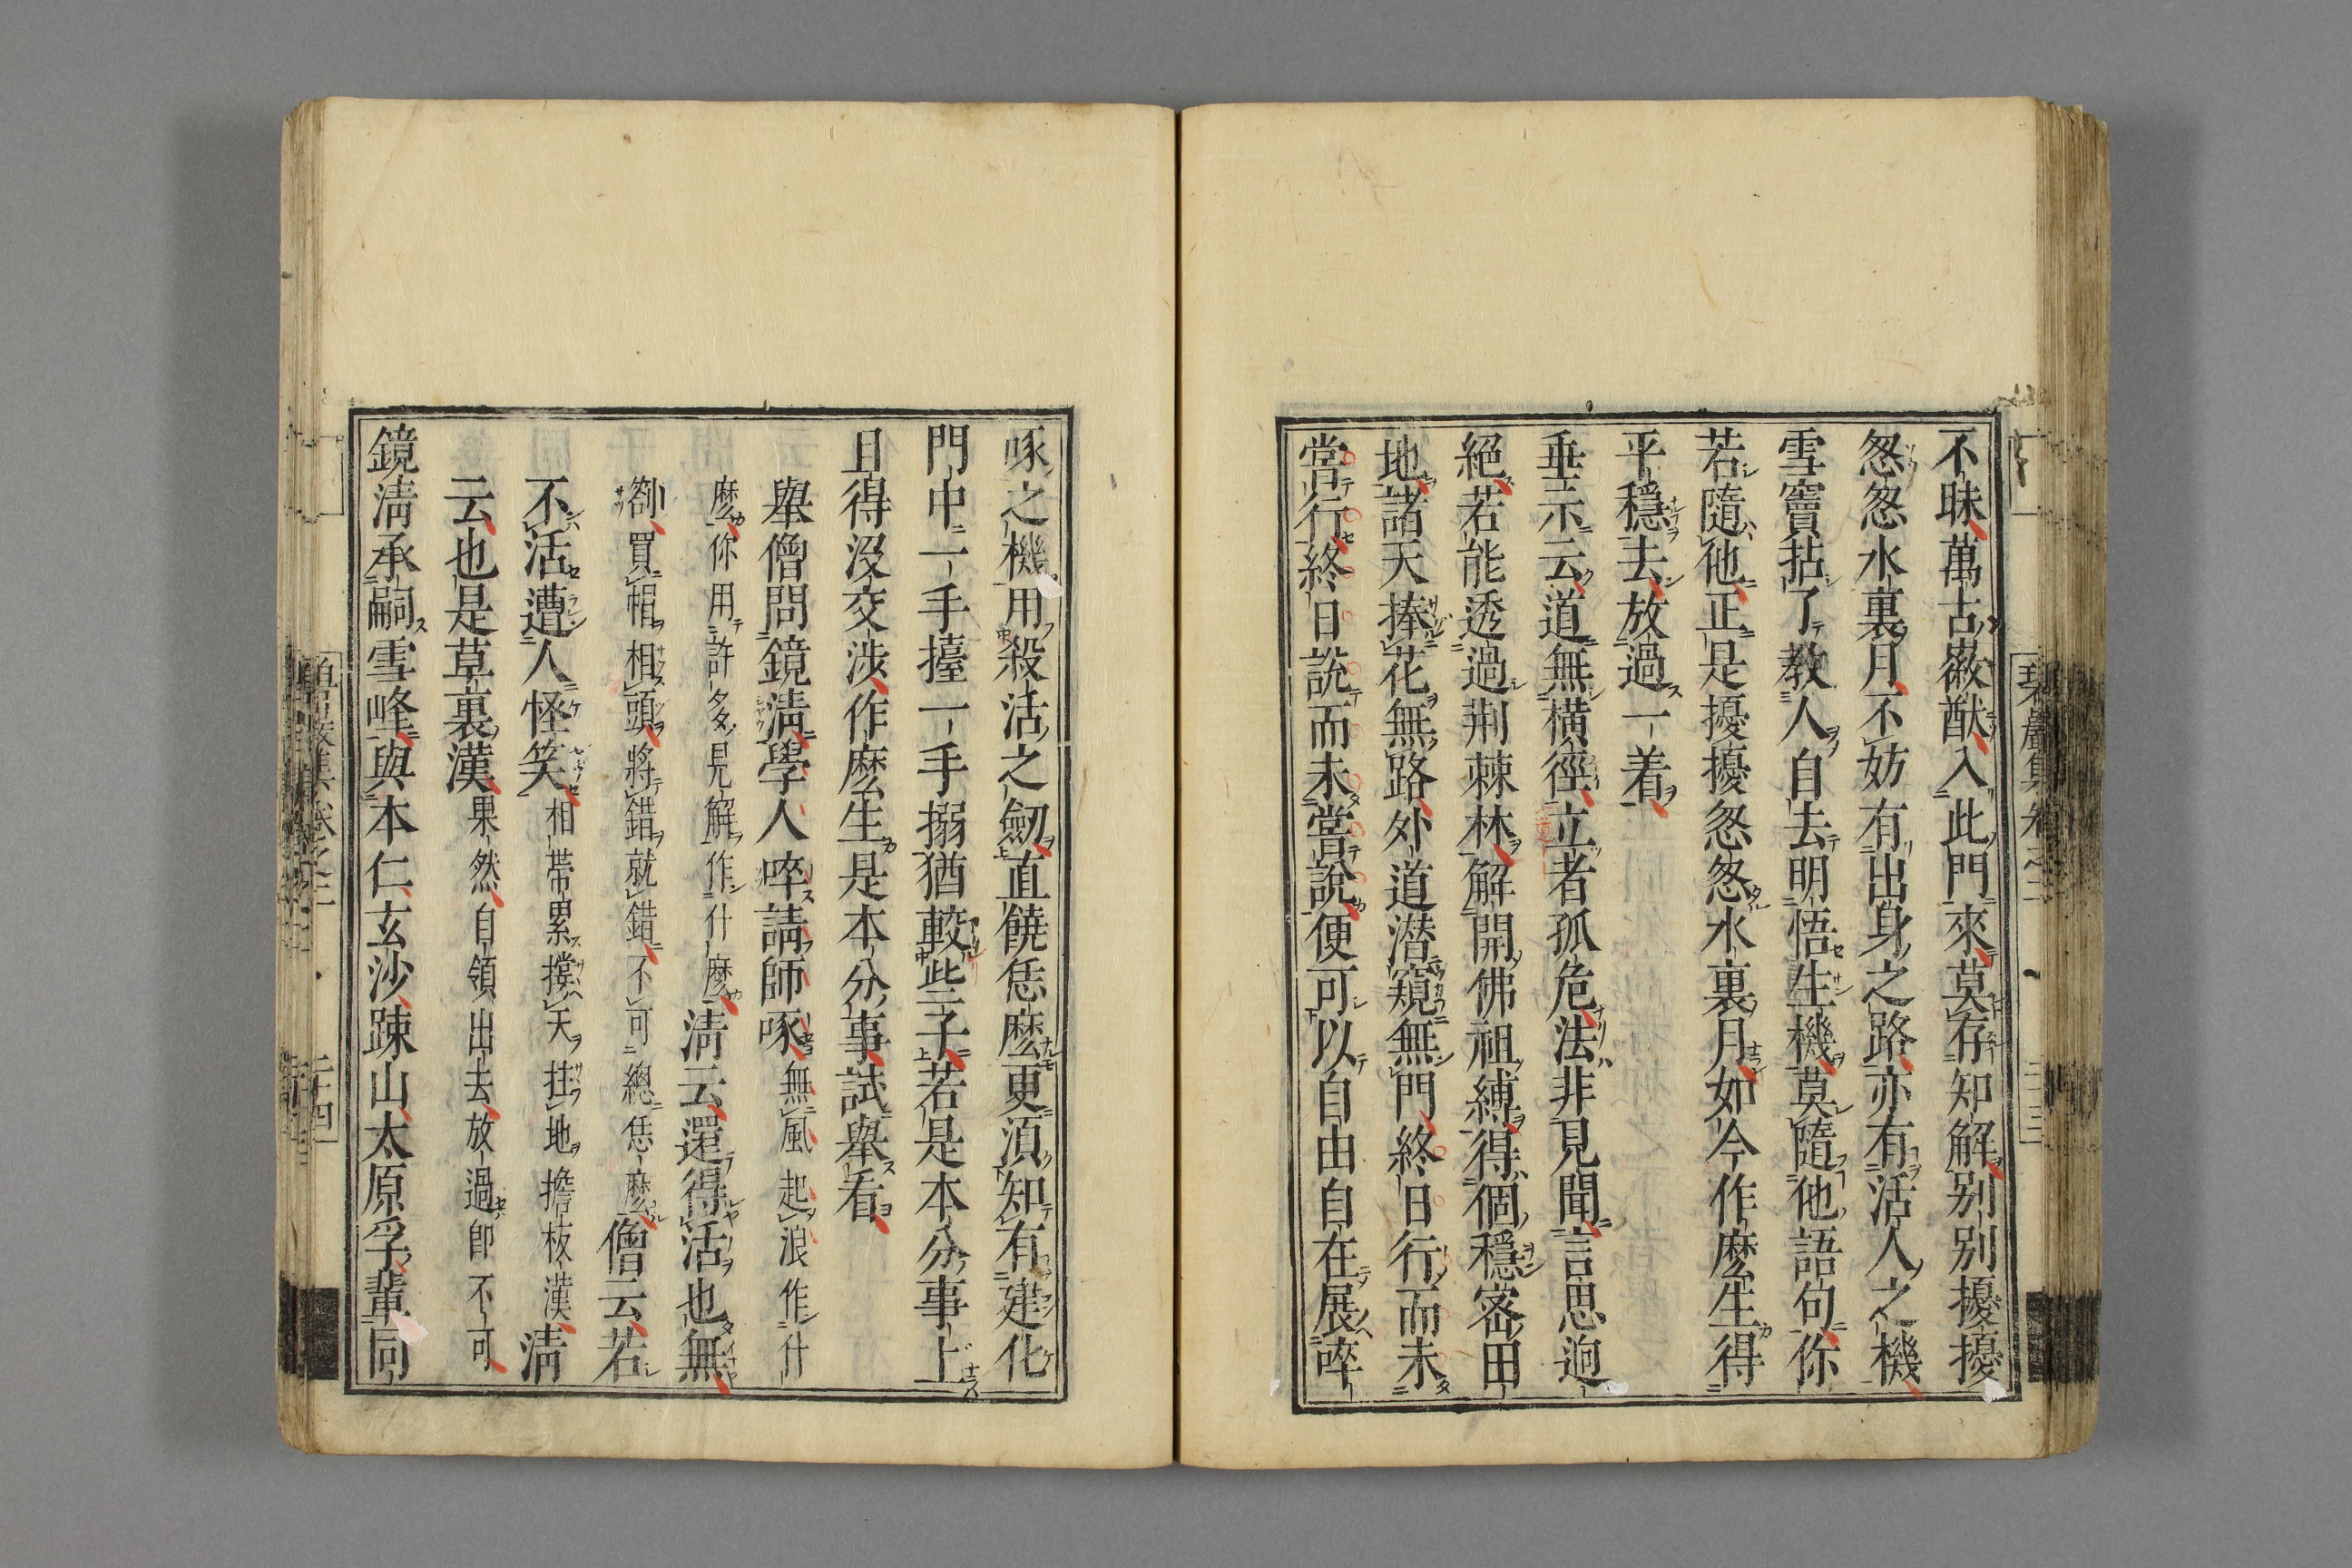 不昧萬古徽猷入此門來莫存知解別別擾擾
怱怱水裏月不妨有出身之路亦有活人之機
雪竇拈了教人自去明悟生機莫隨他語句你
若隨他正是擾擾怱怱水裏月如今作麼生得
平穩去放過一着
垂示云道無橫徑立者孤危法非見聞言思逈
絕若能透過荆棘林解開佛祖縛得個穩密田
地諸天捧花無路外道潜窺無門終日行而未
當行終日說而未當說便可以自由自在展啐
啄之機用殺活之劒直饒恁麼更湏知有建化
門中一手擡一手搦猶較些子若是本分事上
且得沒交涉作麼生是本分事試舉看
舉僧問鏡淸學人啐請師啄無風起浪作什
麼你用許多見解作什麼淸云還得活也無
劄買帽相頭將錯就錯不可總恁麼僧云若
不活遭人怪笑相帶累撑天拄地擔板漢淸
云也是草裏漢果然自領出去放過即不可
鏡淸承嗣雪峰與本仁玄沙踈山太原孚輩同